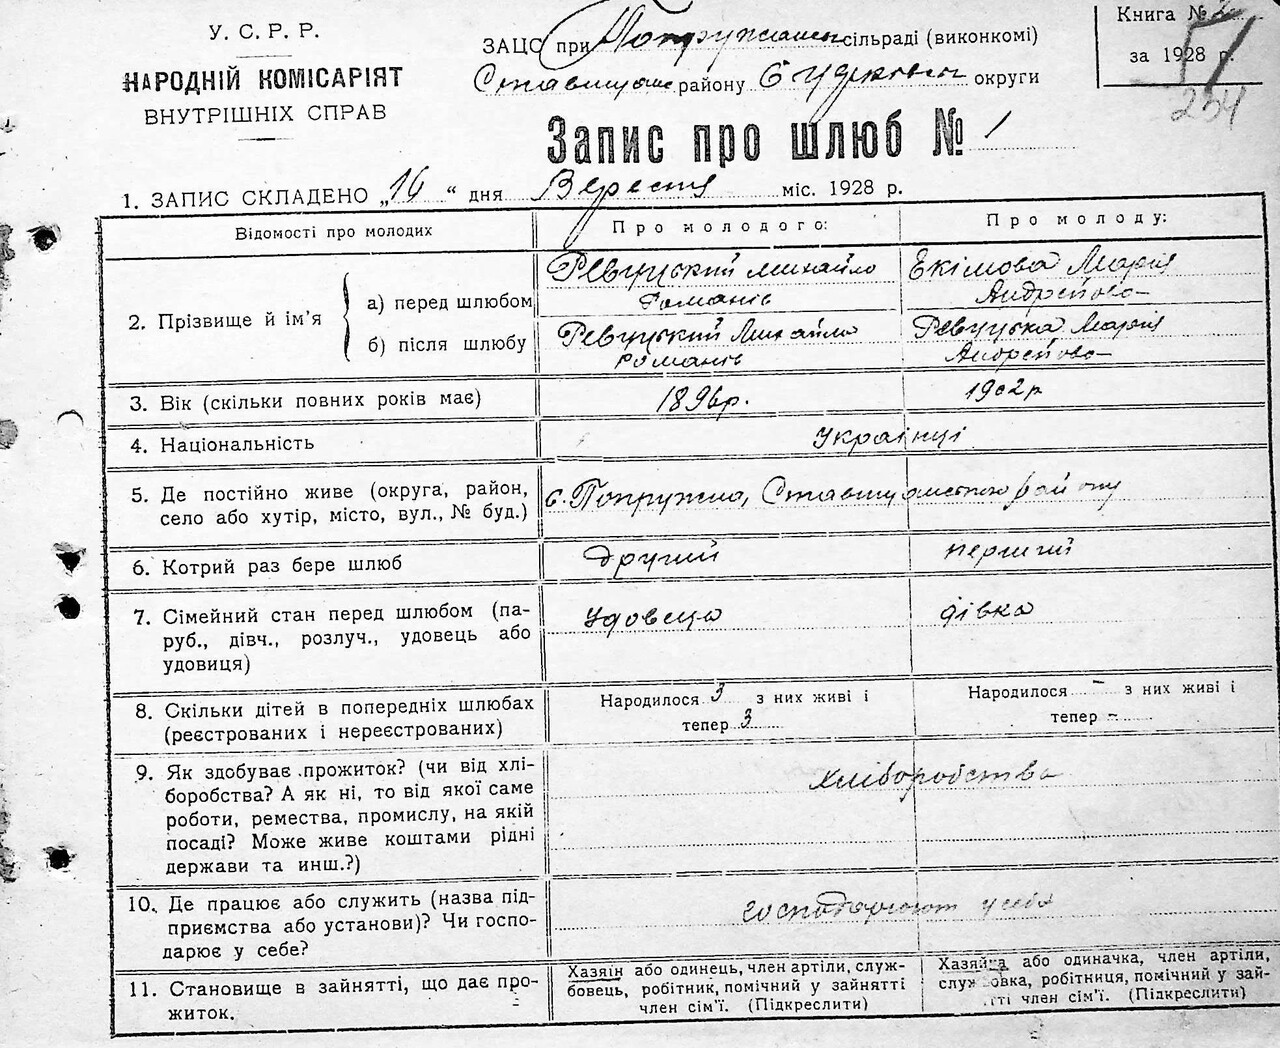 У. С. Р. Р.
НАРОДНІЙ КОМІСАРІЯТ
ВНУТРІШНІХ СПРАВ
ЗАЦС при сільраді (виконкомі)
району округи
Книга №
за 1928 р.
51
254
Запис про шлюб № 1
1. ЗАПИС СКЛАДЕНО „16“ дня Вересня міс. 1928 р.
Відомості про молодих
Про молодого:
Про молоду:
2. Прізвище й ім'я
а) перед шлюбом
Ревуцький Михайло
Романів
Екімова Марія
Андреєвова
б) після шлюбу
Ревуцький Михайло
Романів
Ревуцька Марія
Андреєвова
3. Вік (скільки повних років має)
1896р.
1902р
4. Національність
Українці
5. Де постійно живе (округа, район,
село або хутір, місто, вул., № буд.)
с. Попружно, району
6. Котрий раз бере шлюб
другий
перший
7. Сімейний стан перед шлюбом (па-
руб., дівч., розлуч., удовець або
удовиця)
Удовець
дівка
8. Скільки дітей в попередніх шлюбах
(реєстрованих і нереєстрованих)
Народилося 3 з них живі і
тепер 3
Народилося - з них живі і
тепер -
9. Як здобуває прожиток? (чи від хлі-
боробства? А як ні, то від якої саме
роботи, ремества, промислу, на якій
посаді? Може живе коштами рідні
держави та инш.?)
хліборобства
10. Де працює або служить (назва під-
приємства або установи)? Чи госпо-
дарює у себе?
господарюют у себя
11. Становище в зайнятті, що дає про-
житок.
Хазяїн або одинець, член артіли, служ-
бовець, робітник, помічний у зайнятті
член сім'ї. (Підкреслити)
Хазяйка або одиначка, член артіли,
службовка, робітниця, помічний у зай-
нятті член сім'ї. (Підкреслити)